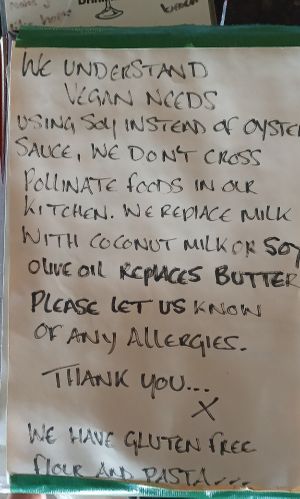 WE UNDERSTAND
VEGAN NEEDS
USING SOY INSTEAD OF OYSTER
SAUCE, WE DON'T CROSS
POLLINATE FOODS IN OUR
KITCHEN. WE REPLACE MILK
WITH COCONUT MILK OR SOY
OLIVE OIL REPLACES BUTTER
PLEASE LET US KNOW
OF ANY ALLERGIES.
THANK YOU...
X
WE HAVE GLUTEN FREE
FLOUR AND PASTA....